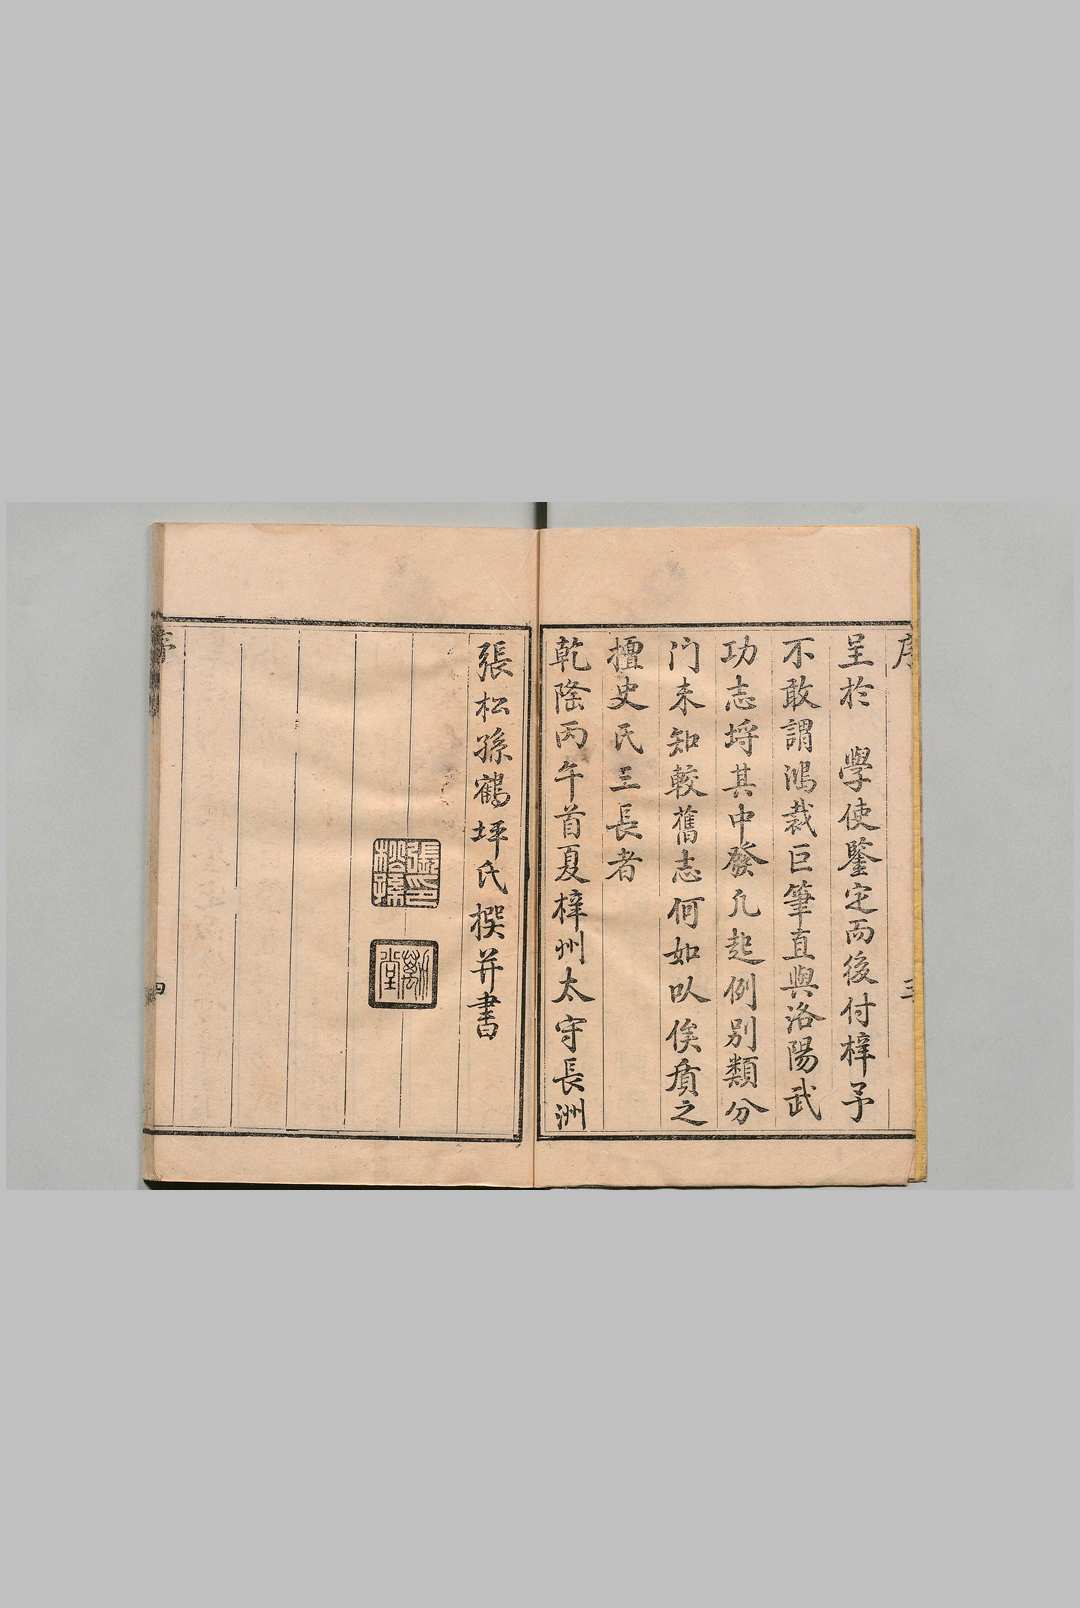 序
三
呈於　學使鑒定而後付梓予
不敢謂鴻裁巨筆直與洛陽武
功志埒其中發凡起例別類分
门未知較舊志何如以俟質之
擅史氏三長者
乾隆丙午首夏梓州太守長洲
張松孫鶴坪氏撰并書
張印松孫
堂
序
四